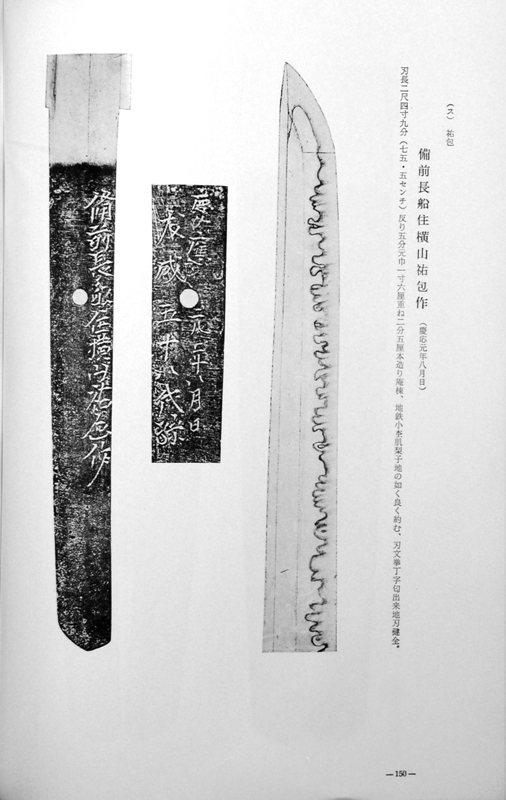 (ス) 祐包
備前長船住横山祐包作 (慶応元年八月日)
刃長二尺四寸九分(七五・五センチ)反り五分元巾一寸六厘重ね二分五厘本造り庵棟、地鉄小杢肌梨子地の如く良く約む、刃文拳丁字匂出来地刃健全。
慶応元年八月日
友成五十八代孫
備前長船住横山祐包作
—150—